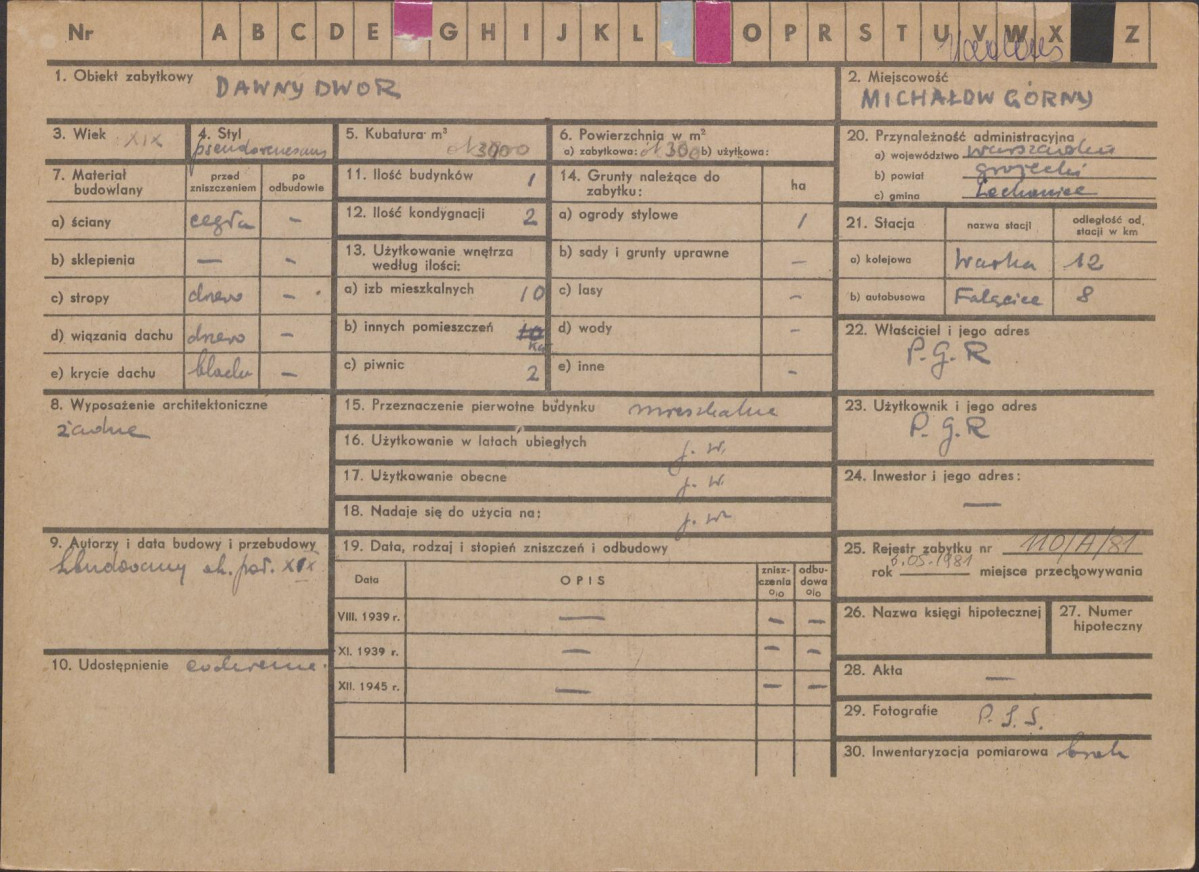 Nr A B C D E G H I J K L O P R S T U V W X Z
1. Obiekt zabytkowy DAWNY DWÓR
2. Miejscowość
MICHAŁÓW GÓRNY
3. Wiek XIX
4. Styl
pseudorenesans
5. Kubatura m³
3000
6. Powierzchnia w m²
a) zabytkowa: 300 b) użytkowa:
20. Przynależność administracyjna
a) województwo warszawskie
b) powiat grójecki
c) gmina Lechanice
7. Materiał budowlany
przed zniszczeniem
po odbudowie
a) ściany cegła –
b) sklepienia – –
c) stropy drzewo –
d) wiązania dachu drzewo –
e) krycie dachu blacha –
11. Ilość budynków 1
12. Ilość kondygnacji 2
13. Użytkowanie wnętrza
według ilości:
a) izb mieszkalnych 10
b) innych pomieszczeń 10
c) piwnic 2
14. Grunty należące do
zabytku:
ha
a) ogrody stylowe 1
b) sady i grunty uprawne –
c) lasy –
d) wody –
e) inne –
21. Stacja
nazwa stacji
odległość od, stacji w km
a) kolejowa Warka 12
b) autobusowa Falęcice 8
22. Właściciel i jego adres
P.G.R
8. Wyposażenie architektoniczne
żadne
15. Przeznaczenie pierwotne budynku mieszkalne
16. Użytkowanie w latach ubiegłych j. w.
17. Użytkowanie obecne j. w.
18. Nadaje się do użycia na: j. w.
23. Użytkownik i jego adres
P.G.R
24. Inwestor i jego adres:
—
9. Autorzy i data budowy i przebudowy
Zbudowany ok. poł. XIX
10. Udostępnienie
19. Data, rodzaj i stopień zniszczeń i odbudowy
Data OPIS znisz-czenia o/o odbu-dowa o/o
VIII. 1939 r. — – –
XI. 1939 r. — – –
XII. 1945 r. — – –
25. Rejestr zabytku nr 110/A/81
rok 6.05.1981 miejsce przechowywania
26. Nazwa księgi hipotecznej
27. Numer hipoteczny
28. Akta —
29. Fotografie P.I.S.
30. Inwentaryzacja pomiarowa brak